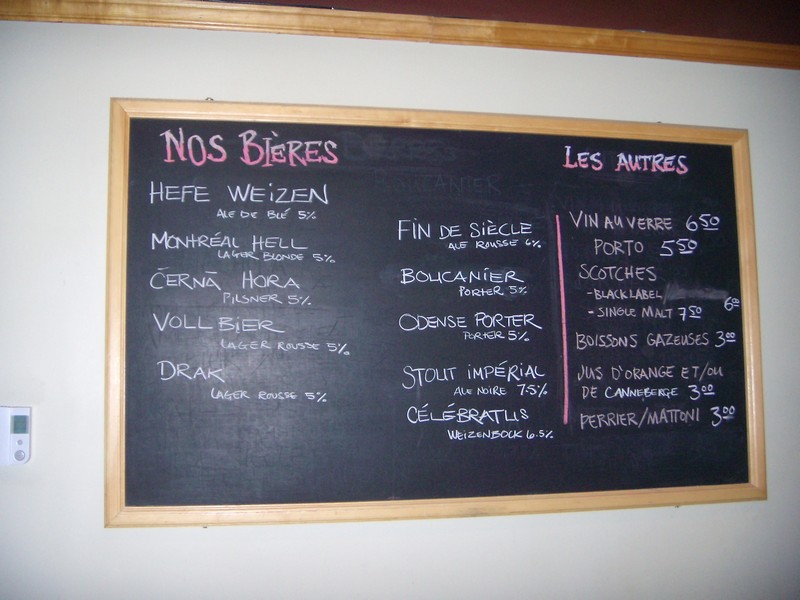 NOS BIÈRES
HEFE WEIZEN
ALE DE BLÉ 5%
MONTRÉAL HELL
LAGER BLONDE 5%
ČERNÁ HORA
PILSNER 5%
VOLL BIER
LAGER ROUSSE 5%
DRAK
LAGER ROUSSE 5%
FIN DE SIÈCLE
ALE ROUSSE 6%
BOUCANIER
PORTER 5%
ODENSE PORTER
PORTER 5%
STOUT IMPÉRIAL
ALE NOIRE 7.5%
CÉLÉBRATUS
WEIZENBOCK 6.5%
LES AUTRES
VIN AU VERRE 6 50
PORTO 5 50
SCOTCHES
- BLACK LABEL/ 6 00
- SINGLE MALT 7 50
BOISSONS GAZEUSES 3 00
JUS D'ORANGE ET/OU
DE CANNEBERGE 3 00
PERRIER/MATTONI 3 00